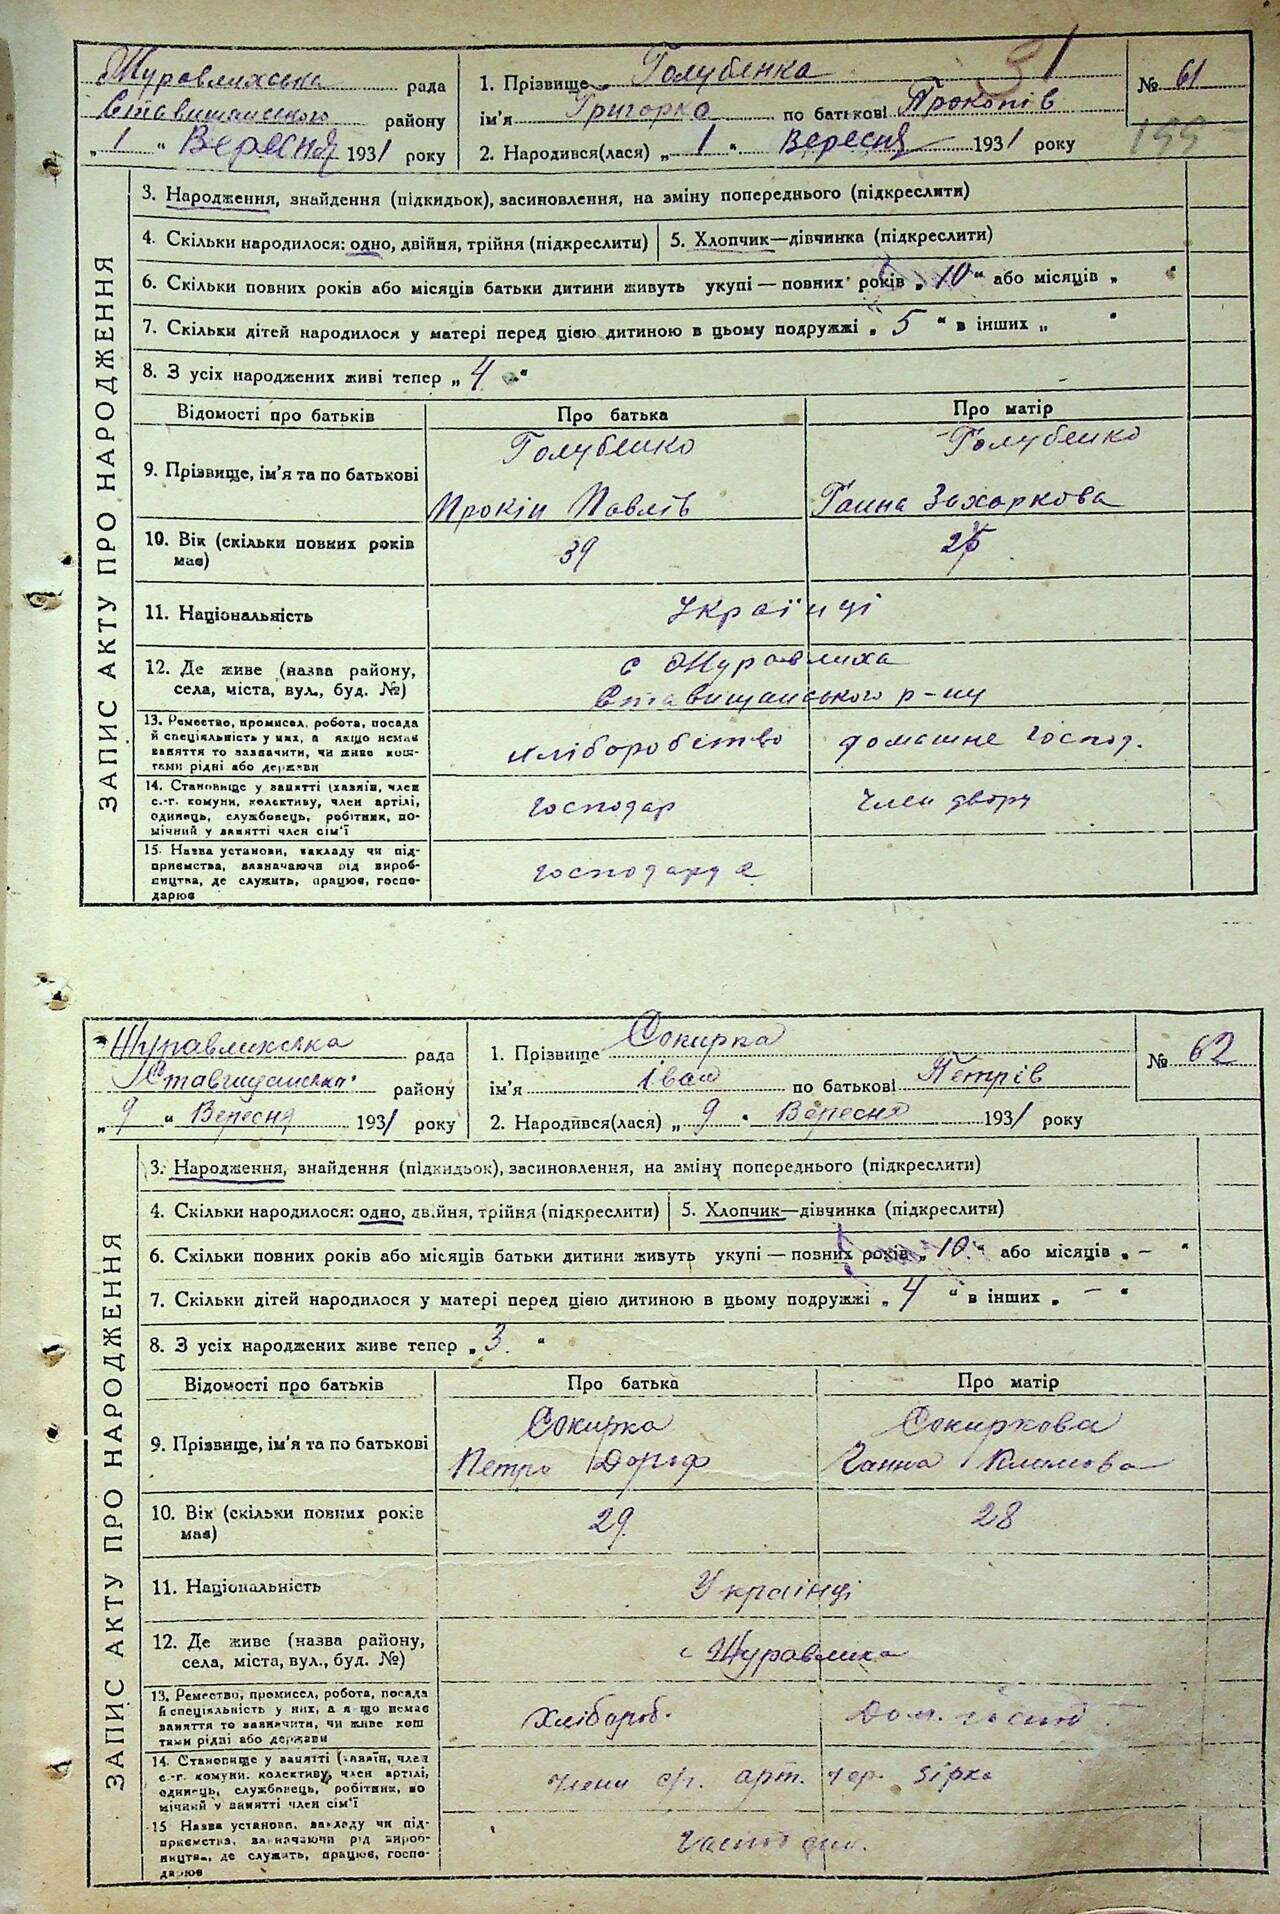 31
Журавлихська рада
Ставищанського району
„ 1 “ Вересня 1931 року
1. Прізвище Голубенка
ім'я Григорка по батькові Прокопів
2. Народився(лася) „ 1 “ Вересня 1931 року
№ 61
199
ЗАПИС АКТУ ПРО НАРОДЖЕННЯ
3. Народження, знайдення (підкидьок), засиновлення, на зміну попереднього (підкреслити)
4. Скільки народилося: одно, двійня, трійня (підкреслити) 5. Хлопчик—дівчинка (підкреслити)
6. Скільки повних років або місяців батьки дитини живуть укупі — повних років „ 10 “ або місяців „ “
7. Скільки дітей народилося у матері перед цією дитиною в цьому подружжі „ 5 “ в інших „ “
8. З усіх народжених живі тепер „ 4 “
Відомості про батьків Про батька Про матір
9. Прізвище, ім'я та по батькові
Голубенко Голубенко
Прокіп Павлів Ганна Захаркова
10. Вік (скільки повних років має) 39 25
11. Національність Українці
12. Де живе (назва району, села, міста, вул., буд. №)
с Журавлиха
Ставищанського р-ну
13. Ремество, промисел, робота, посада й спеціяльність у них, а якщо немає заняття то зазначити, чи живе коштами рідні або держави
хліборобство домашне господ.
14. Становище у занятті (хазяїн, член с.-г. комуни, колективу, член артілі, одинець, службовець, робітник, помічний у занятті член сім'ї
господар член двору
15. Назва установи, закладу чи підприємства, зазначаючи рід виробництва, де служить, працює, господарює
Журавлихська рада
Ставищанська району
„ 9 “ Вересня 1931 року
1. Прізвище Сокирка
ім'я Іван по батькові Петрів
2. Народився(лася) „ 9 “ Вересня 1931 року
№ 62
ЗАПИС АКТУ ПРО НАРОДЖЕННЯ
3. Народження, знайдення (підкидьок), засиновлення, на зміну попереднього (підкреслити)
4. Скільки народилося: одно, двійня, трійня (підкреслити) 5. Хлопчик—дівчинка (підкреслити)
6. Скільки повних років або місяців батьки дитини живуть укупі — повних років „ 10 “ або місяців „ – “
7. Скільки дітей народилося у матері перед цією дитиною в цьому подружжі „ 4 “ в інших „ – “
8. З усіх народжених живе тепер „ 3 “
Відомості про батьків Про батька Про матір
9. Прізвище, ім'я та по батькові
Сокирка Сокиркова
Петро Дороф Ганна Климова
10. Вік (скільки повних років має) 29 28
11. Національність Українці
12. Де живе (назва району, села, міста, вул., буд. №)
с Журавлиха
13. Ремество, промисел, робота, посада й спеціяльність у них, а якщо немає заняття то зазначити, чи живе коштами рідні або держави
Хлібороб. Дом. госпо
14. Становище у занятті (хазяїн, член с.-г. комуни, колективу, член артілі, одинець, службовець, робітник, помічний у занятті член сім'ї
члени арт. Зірка
15 Назва установи, закладу чи підприємства, зазначаючи рід виробництва, де служить, працює, господарює